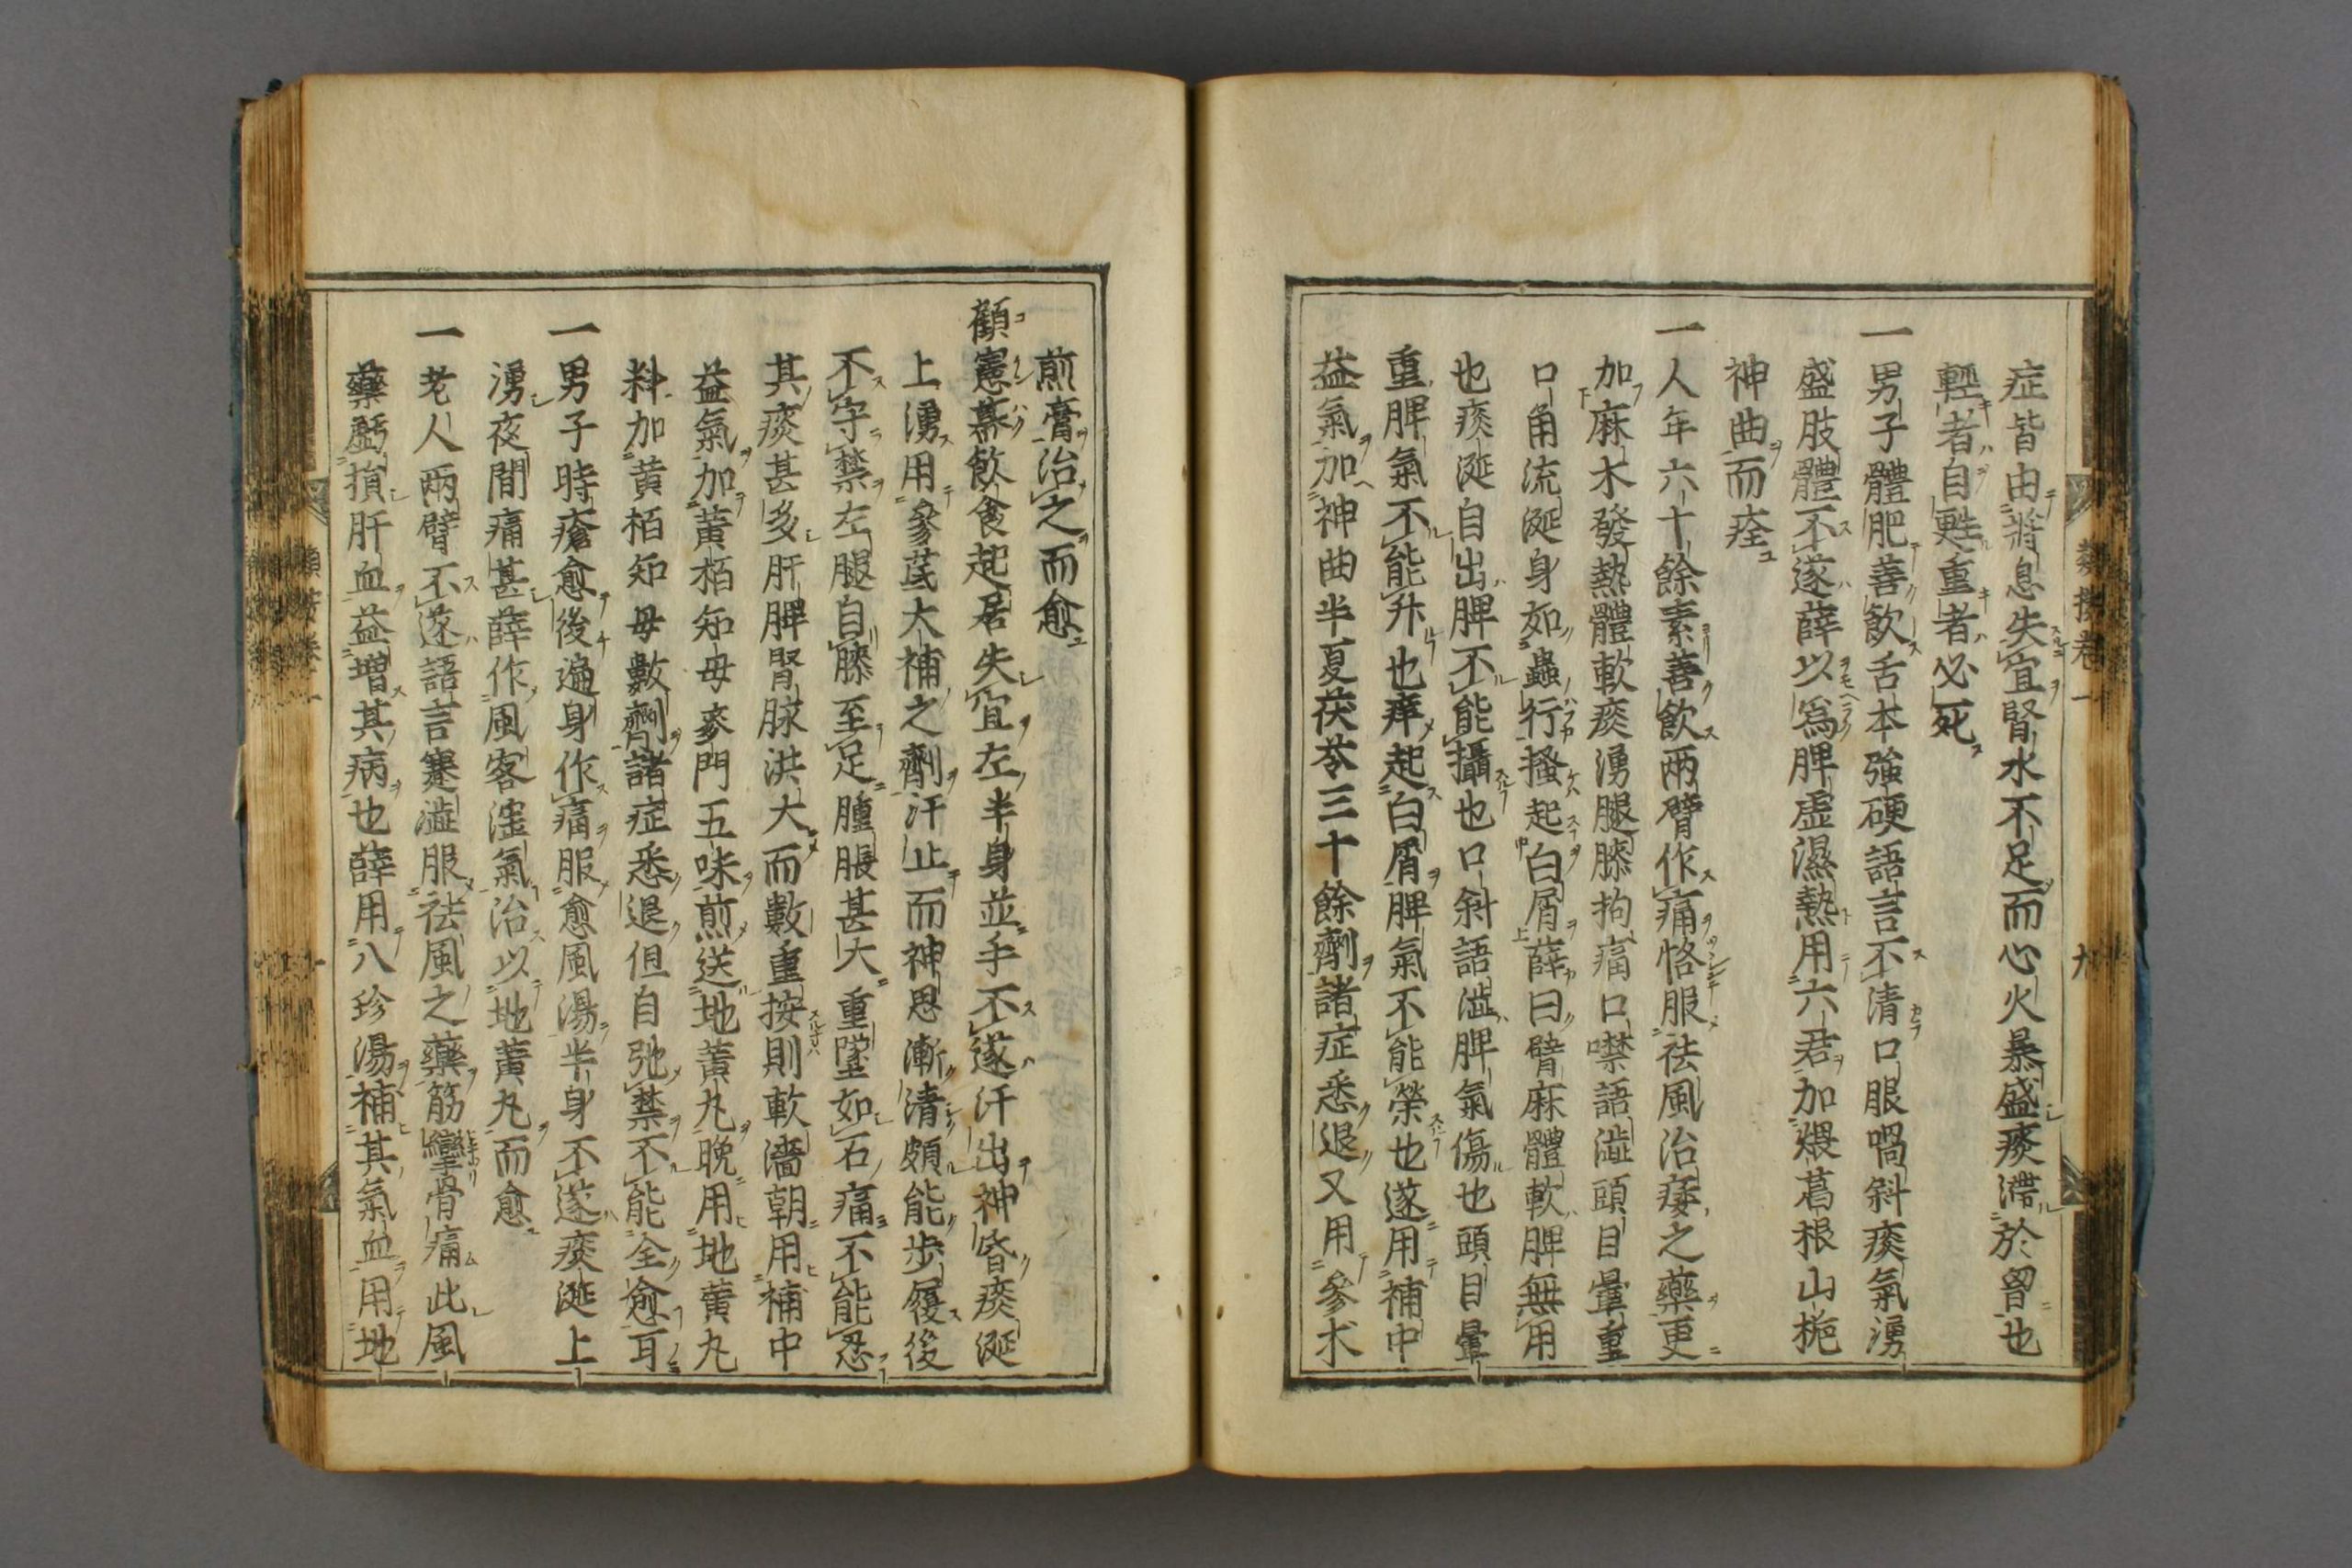 症皆由將息失宜腎水不足而心火暴盛痰滯於胷也
輕者自甦重者必死
一男子體肥善飮舌本強硬語言不清口眼喎斜痰氣湧
盛肢體不遂薛以爲脾虛濕熱用六君加煨葛根山梔
神曲而痊
一人年六十餘素善飮兩臂作痛恪服祛風治痿之藥更
加麻木發熱體軟痰湧腿膝拘痛口噤語澁頭目暈重
口角流涎身如蟲行搔起白屑薛曰臂麻體軟脾無用
也痰涎自出脾不能攝也口斜語澁脾氣傷也頭目暈
重脾氣不能升也痒起白屑脾氣不能榮也遂用補中
益氣加神曲半夏茯苓三十餘劑諸症悉退又用參朮
煎膏治之而愈
顧憲幕飮食起居失宜左半身並手不遂汗出神昏痰涎
上湧用參芪大補之劑汗止而神思漸清頗能步履後
不守禁左腿自膝至足腫脹甚大重墜如石痛不能忍
其痰甚多肝脾腎脉洪大而數重按則軟濇朝用補中
益氣加黃栢知母麥門五味煎送地黃丸晩用地黃丸
料加黃栢知母數劑諸症悉退但自弛禁不能全愈耳
一男子時瘡愈後遍身作痛服愈風湯半身不遂痰涎上
湧夜間痛甚薛作風客滛氣治以地黃丸而愈
一老人兩臂不遂語言蹇澁服祛風之藥筋攣骨痛此風
藥虧損肝血益增其病也薛用八珍湯補其氣血用地
類按卷一
九